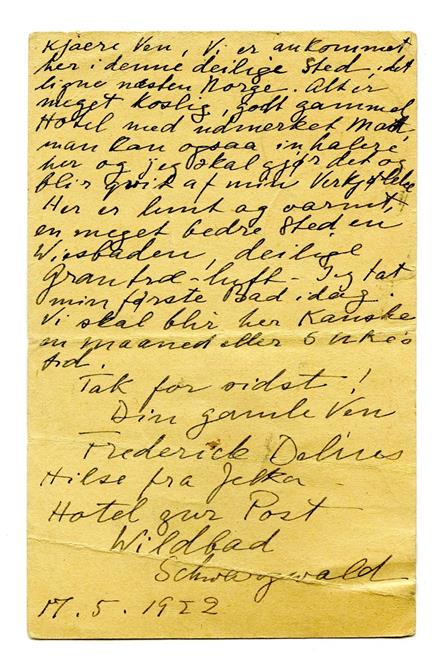 Kjaere Ven, Vi er ankommet
her i denne deilige Sted, det
ligne næsten Norge. Alt er
meget koslig, godt gammel
Hotel med udmerket Mad,
man kan ogsaa inhalere
her og jeg skal gjør det og
blir qvit af min
Her er lunt og varmt,
en meget bedre Sted en
Wiesbaden, deilige
Grantræ-luft - Jeg tat
min første Bad i dag.
Vi skal blir her Kanske
en maaned eller 6 Uke's
tid.
Tak for sidst!
Din gamle Ven
Frederick Delius
Hilse fra Jelka
Hotel zur Post
Wildbad
Schwarzwald
17.5.1922